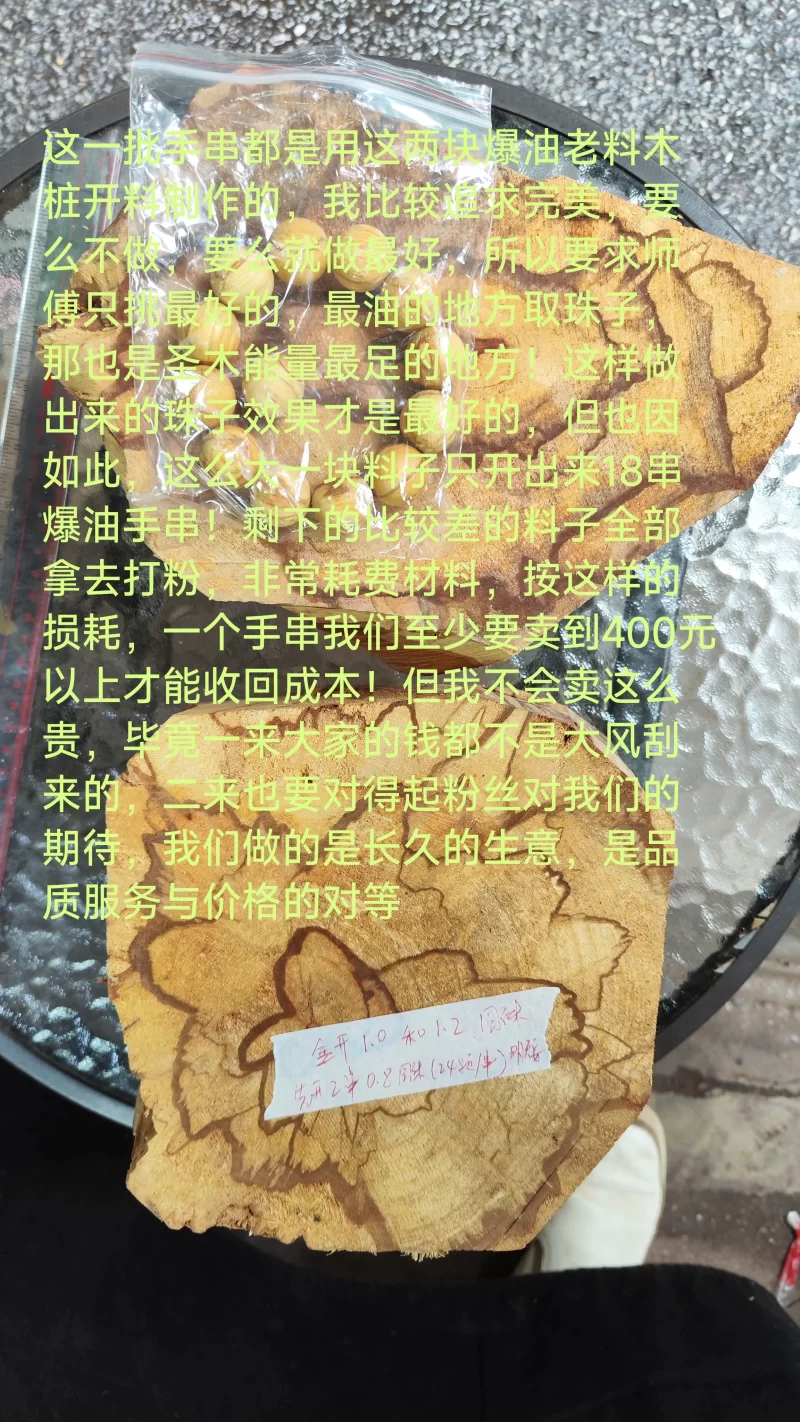 这一批手串都是用这两块爆油老料木
桩开料制作的，我比较追求完美，要
么不做，要么就做最好，所以要求师
傅只挑最好的，最油的地方取珠子，
那也是圣木能量最足的地方！这样做
出来的珠子效果才是最好的，但也因
如此，这么大一块料子只开出来18串
爆油手串！剩下的比较差的料子全部
拿去打粉，非常耗费材料，按这样的
损耗，一个手串我们至少要卖到400元
以上才能收回成本！但我不会卖这么
贵，毕竟一来大家的钱都不是大风刮
来的，二来也要对得起粉丝对我们的
期待，我们做的是长久的生意，是品
质服务与价格的对等
全开 1.0 和 1.2 圆珠
先开 2串 0.8 圆珠 (24颗/串)